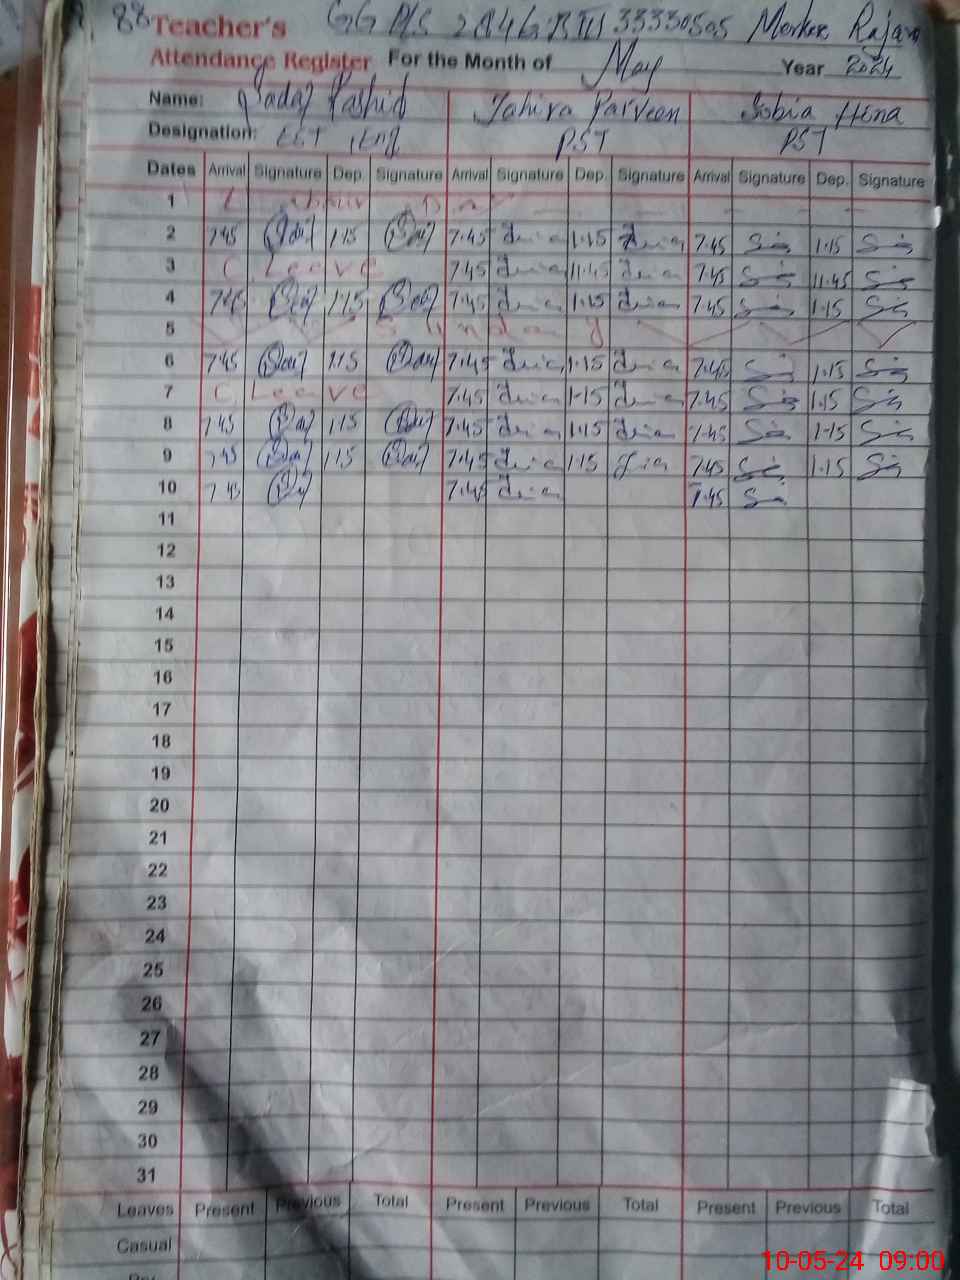 88 Teacher's GGP/S 284 GB III 33330505 Markaz Rajana
Attendance Register For the Month of May Year 2024
Name: Sadaf Rashid Tahira Parveen Sobia Hina
Designation: EST Eng PST PST
Dates Arrival Signature Dep. Signature Arrival Signature Dep. Signature Arrival Signature Dep. Signature
1 Labour Day
2 7.45 1.15 7.45 1.15 7.45 1.15
3 C Leave 7.45 11.45 7.45 11.45
4 7.45 1.15 7.45 1.15 7.45 1.15
5 Sunday
6 7.45 1.15 7.45 1.15 7.45 1.15
7 C Leave 7.45 1.15 7.45 1.15
8 7.45 1.15 7.45 1.15 7.45 1.15
9 7.45 1.15 7.45 1.15 7.45 1.15
10 7.45 7.45 7.45
11
12
13
14
15
16
17
18
19
20
21
22
23
24
25
26
27
28
29
30
31
Leaves Present Previous Total Present Previous Total Present Previous Total
Casual
10-05-24 09:00